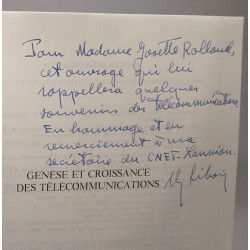 Pour Madame Josette Rolland,
cet ouvrage qui lui
rappellera quelques
souvenirs des télécommunications
En hommage et en
remerciement à une
secrétaire du CNET-Lannion.
GENÈSE ET CROISSANCE
DES TÉLÉCOMMUNICATIONS